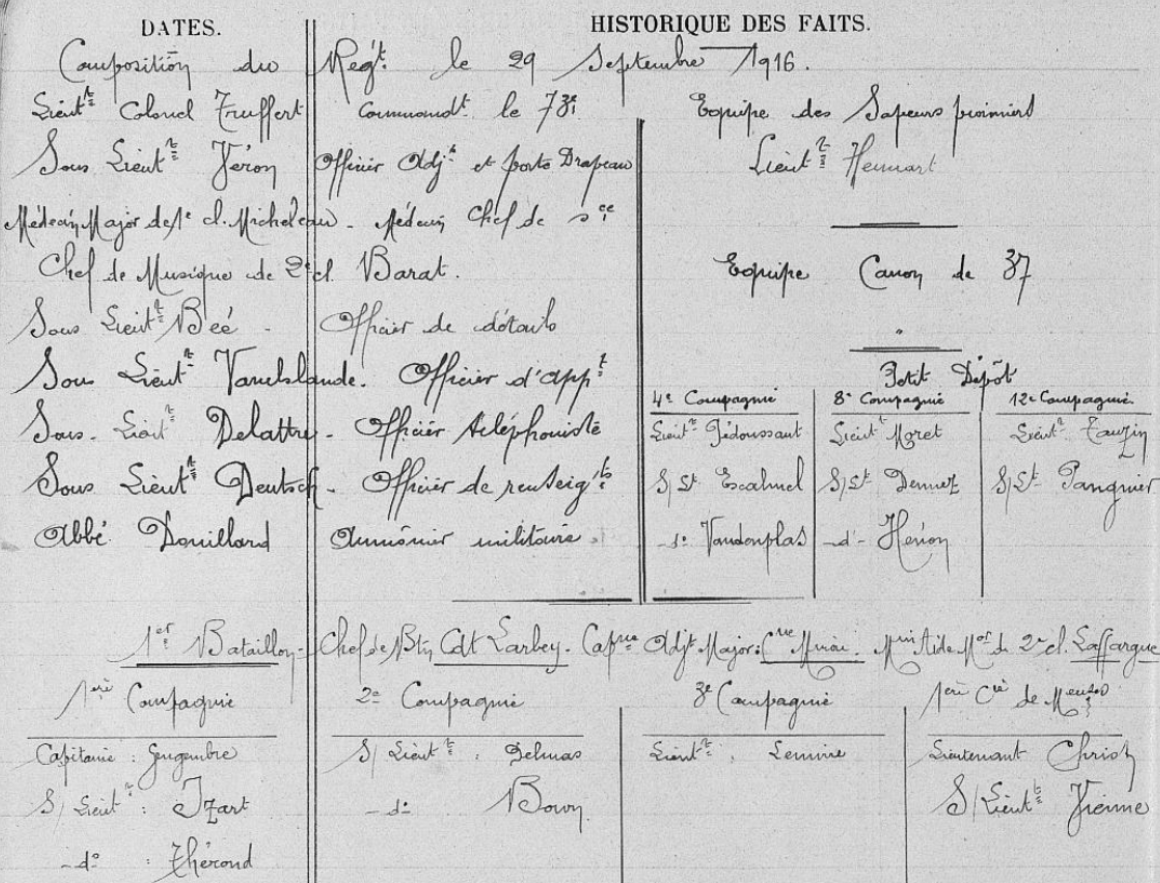 DATES. HISTORIQUE DES FAITS.
Composition du Régt. le 29 Septembre 1916.
Lieutt Colonel Truffert Commandt. le 73e
Sous Lieutt Véron Officier Adjt et porte Drapeau
Médecin Major de 1e cl. Micheleau - Médecin Chef de Sce
Chef de Musique de 2e cl. Barat.
Sous Lieutt Beé - Officier de détails
Sous Lieutt Vanelslande. Officier d'appt
Sous-Lieutt Delattre - Officier téléphoniste
Sous Lieutt Deutsch - Officier de renseigts
Abbé Douillard Aumônier militaire.
Equipe des Sapeurs pionniers
Lieutt Hennart
Equipe Canon de 37
"
Petit Dépôt
4e Compagnie 8e Compagnie 12e Compagnie
Lieutt Jédoussaut Lieutt Moret Lieutt Tauzin
S/Lt Escalmel S/Lt Dennez S/Lt Pangnier
-do Vandenplas -do- Hénon
1er Bataillon - Chef de Btn Cdt Larbey. Capne Adjt Major: Cne Miriai. Min Aide Mor de 2e cl. Laffargue
1ère Compagnie 2e Compagnie 3e Compagnie 1ère Cie de Meuses
Capitaine : Gengembre S/Lieutt : Delmas Lieutt : Lemire Lieutenant Christy
S/Lieutt : Izart -do Bown S/Lieutt Vienne
-do : Thérond